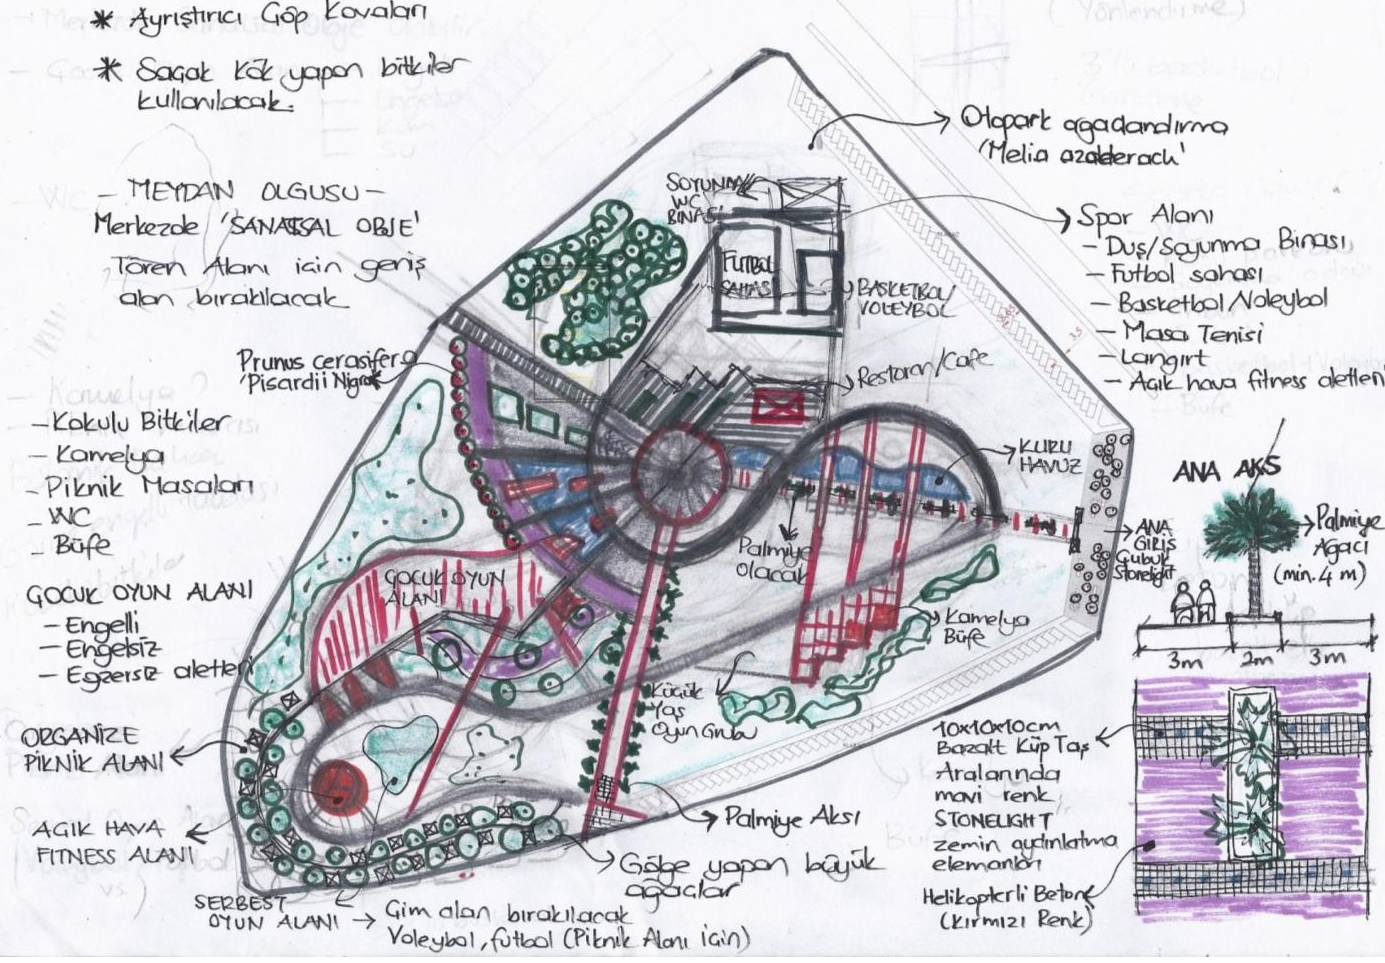 * Ayrıştırıcı Çöp Kovaları
* Saçak kök yapan bitkiler
kullanılacak.
- MEYDAN OLGUSU -
Merkezde 'SANATSAL OBJE'
Tören Alanı için geniş
alan bırakılacak
Prunus cerasifera
'Pisardii Nigra'
- Kokulu Bitkiler
- Kamelya
- Piknik Masaları
- WC
- Büfe
ÇOCUK OYUN ALANI
- Engelli
- Engelsiz
- Egzersiz aletleri
ORGANİZE
PİKNİK ALANI
AÇIK HAVA
FITNESS ALANI
SERBEST
OYUN ALANI
Çim alan bırakılacak
Voleybol, futbol (Piknik Alanı için)
SOYUNMA
WC
BİNASI
FUTBOL
SAHASI
BASKETBOL/
VOLEYBOL
Restoran/Cafe
KURU
HAVUZ
Palmiye
olacak
ÇOCUK OYUN
ALANI
Kamelya
Büfe
Küçük
Yaş
Oyun Grubu
Palmiye Aksı
Gölge yapan büyük
ağaçlar
Otopark ağaçlandırma
'Melia azederach'
Spor Alanı
- Duş/Soyunma Binası
- Futbol sahası
- Basketbol/Voleybol
- Masa Tenisi
- Langırt
- Açık hava fitness aletleri
ANA AKS
ANA
GİRİŞ
Çubuk
Stonelight
Palmiye
Ağacı
(min. 4 m)
3m 2m 3m
10x10x10cm
Bazalt Küp Taş
Aralarında
mavi renk
STONELIGHT
zemin aydınlatma
elemanları
Helikopterli Beton
(Kırmızı Renk)